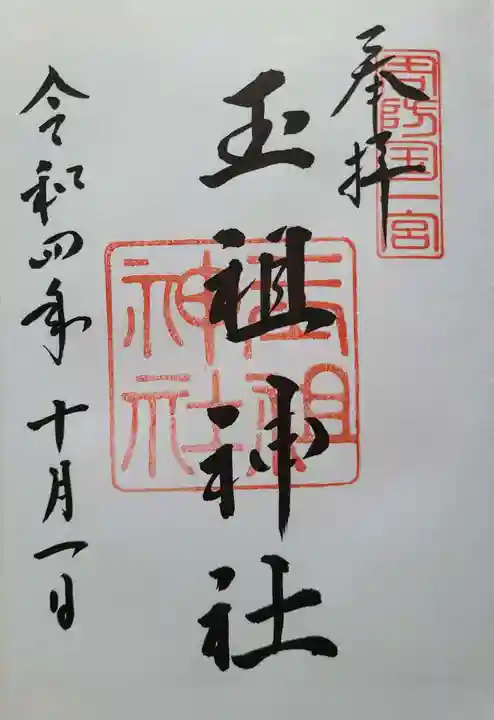 周防国一宮
奉拝
玉祖神社
玉祖神社
令和四年十月一日